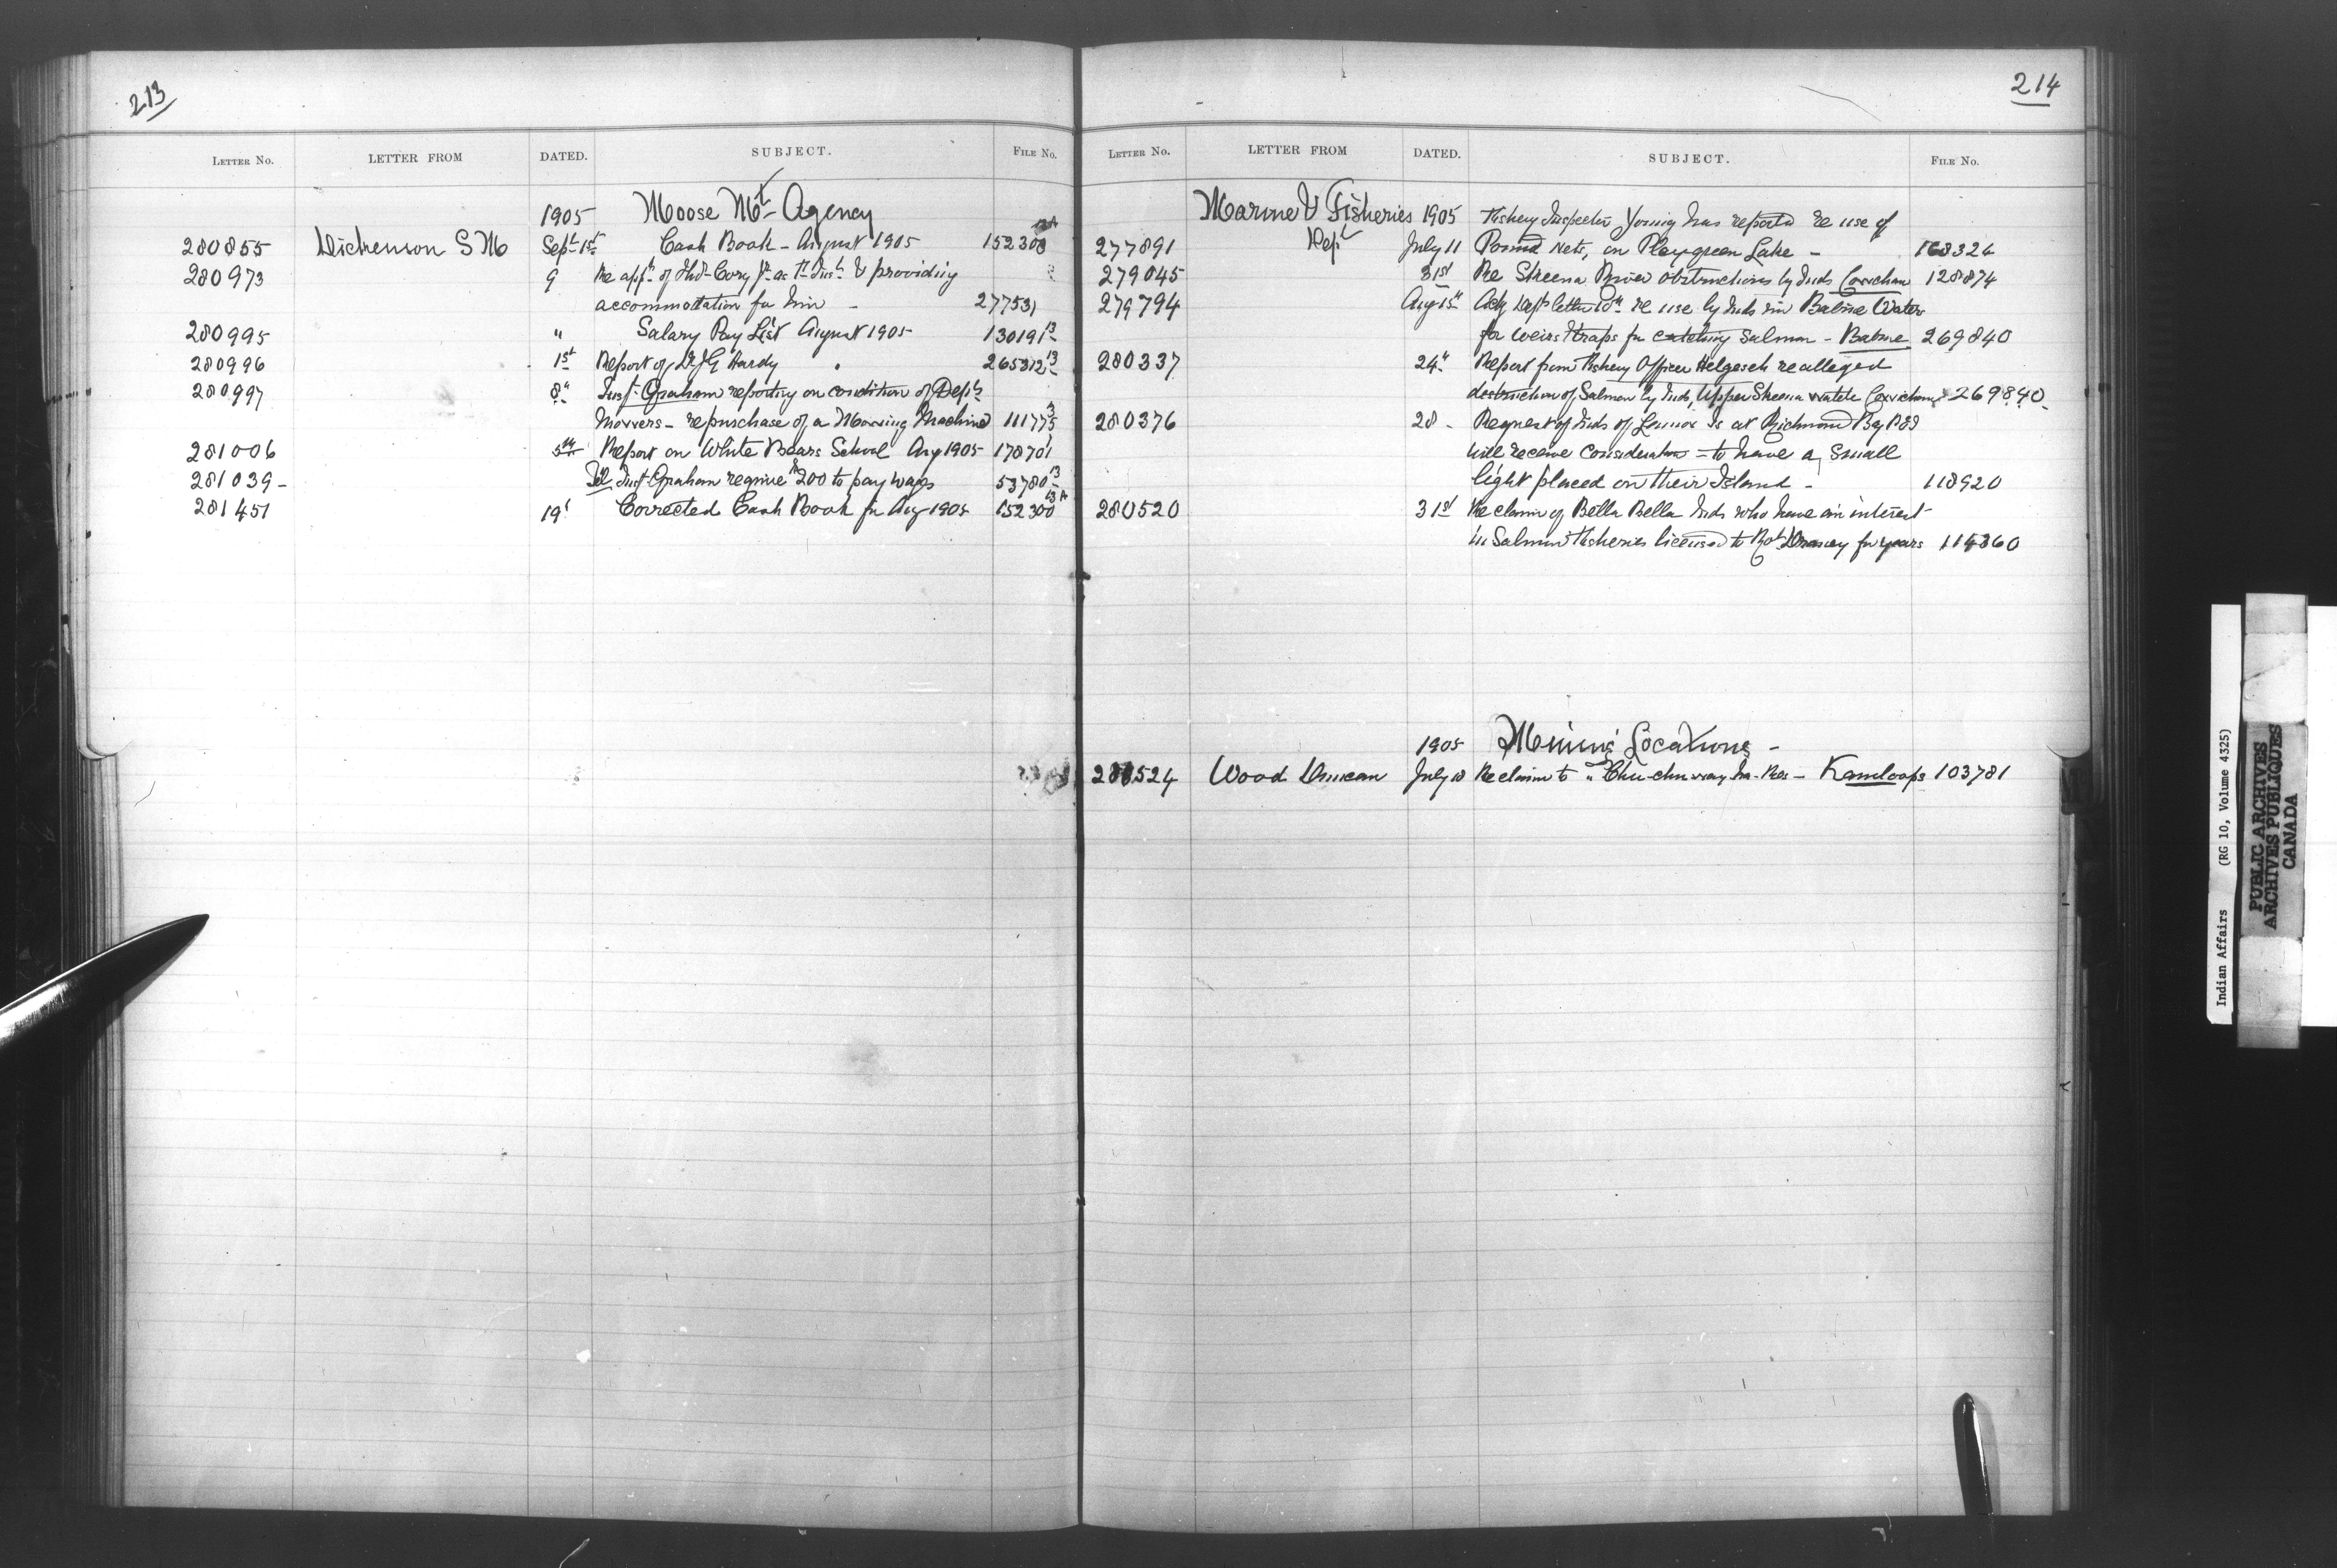 213
LETTER NO. LETTER FROM DATED. SUBJECT. FILE NO.
1905 Moose Mt Agency
280855 Dickenson S M Sept 1st Cash Book - August 1905 152300
280973 9 Re appt of Thos Cory Jr as & providing
accommodation for him - 277531
280995 " Salary Pay List August 1905 130191 13
280996 1st Report of Dr J G Hardy 265312 13
280997 8th Inspr Graham reporting on condition of Dept's
Mowers - re purchase of a Mowing Machine 111775
281006 5th Report on White Bears School Aug 1905 178701
281039 - Tel Inspr Graham require $200 to pay wages 53780 13
281451 19 Corrected Cash Book for Aug 1905 152300 13A
214
LETTER NO. LETTER FROM DATED. SUBJECT. FILE NO.
Marine & Fisheries 1905 Fishery Inspector Young has reported re use of
277891 Dept July 11 Pound Nets, on Playgreen Lake - 168324
279045 31st Re Skeena River obstructions by Inds Cowichan 128874
279794 Aug 15th Ackg Dept letter 10th re use by Inds in Babine Waters
for weirs & traps for catching Salmon - Babine 269840
280337 24th Report from Fishery Officer Helgesen re alleged
destruction of Salmon by Inds, Upper Skeena Cowichan 269840
280376 28 - Request of Inds of Lennox Is at Richmond Bay PEI
will receive consideration - to have a small
light placed on their Island - 118920
280520 31st Re claim of Bella Bella Inds who have an interest
in Salmon Fisheries licensed to Robt Draney for years 114360
1905 Mining Locations -
524 Wood Duncan July 10 Re claim to Kamloops 103781
Indian Affairs (RG 10, Volume 4325)
PUBLIC ARCHIVES
ARCHIVES PUBLIQUES
CANADA